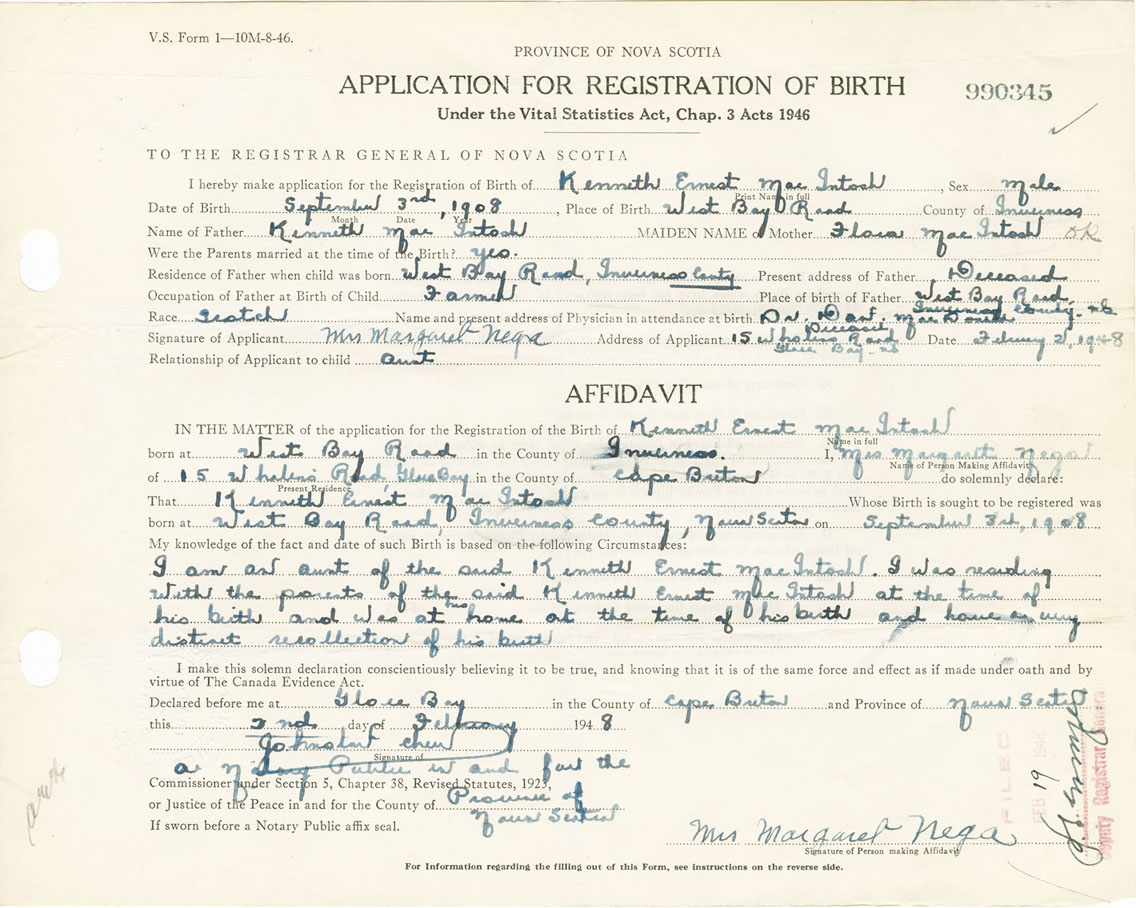 V.S. Form 1—10M-8-46.
PROVINCE OF NOVA SCOTIA
APPLICATION FOR REGISTRATION OF BIRTH
990345
Under the Vital Statistics Act, Chap. 3 Acts 1946
TO THE REGISTRAR GENERAL OF NOVA SCOTIA
I hereby make application for the Registration of Birth of Kenneth Ernest Mac Intosh, Sex Male
Print Name in full
Date of Birth September 3rd, 1908, Place of Birth West Bay Road County of Inverness
Month Date Year
Name of Father Kenneth Mac Intosh MAIDEN NAME of Mother Flora Mac Intosh OK
Were the Parents married at the time of the Birth? yes.
Residence of Father when child was born West Bay Road, Inverness County Present address of Father Deceased
Occupation of Father at Birth of Child Farmer Place of birth of Father West Bay Road
Inverness County. NS
Race Scotch Name and present address of Physician in attendance at birth Dr. Dan. Mac Donald
Deceased
Signature of Applicant Mrs Margaret Nega Address of Applicant 15 Whalens Road Date February 2, 1948
Glace Bay - NS
Relationship of Applicant to child aunt
AFFIDAVIT
IN THE MATTER of the application for the Registration of the Birth of Kenneth Ernest Mac Intosh
Name in full
born at West Bay Road in the County of Inverness. I, Mrs Margaret Nega
Name of Person Making Affidavit
of 15 Whalens Road, Glace Bay in the County of Cape Breton do solemnly declare:
Present Residence
That Kenneth Ernest Mac Intosh Whose Birth is sought to be registered was
born at West Bay Road, Inverness County, Nova Scotia on September 3rd, 1908
My knowledge of the fact and date of such Birth is based on the following Circumstances:
I am an aunt of the said Kenneth Ernest Mac Intosh. I was residing
with the parents of the said Kenneth Ernest Mac Intosh at the time of
his birth and was at his home at the time of his birth and have a very
distinct recollection of his birth
I make this solemn declaration conscientiously believing it to be true, and knowing that it is of the same force and effect as if made under oath and by
virtue of The Canada Evidence Act.
Declared before me at Glace Bay in the County of Cape Breton and Province of Nova Scotia
this 2nd day of February 1948
Signature of
a Notary Public in and for the
Commissioner under Section 5, Chapter 38, Revised Statutes, 1923,
or Justice of the Peace in and for the County of Province of
Nova Scotia
If sworn before a Notary Public affix seal.
Mrs Margaret Nega
Signature of Person making Affidavit
For Information regarding the filling out of this Form, see instructions on the reverse side.
FILED
FEB 19 1948
Deputy Registrar General